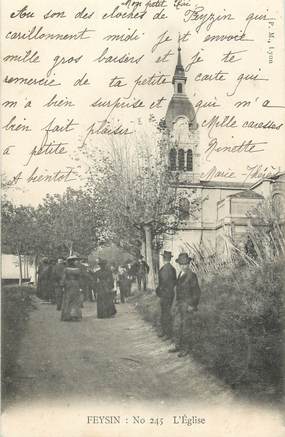 Mon petit Loi
Au son des cloches de Feyzin qui
carillonnent midi je t'envoie
mille gros baisers et je te
remercie de ta petite carte qui
m'a bien surprise et qui m'a
bien fait plaisir Mille caresses
à petite Ninette
A bientot Marie-Thérèse
P. M., Lyon
FEYSIN : No 245 L'Église